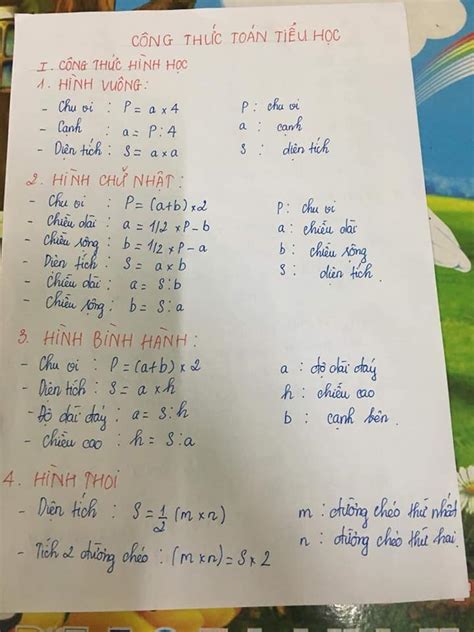 CÔNG THỨC TOÁN TIỂU HỌC
I. CÔNG THỨC HÌNH HỌC
1. HÌNH VUÔNG:
- Chu vi : P = a x 4 P : chu vi
- Cạnh : a = P : 4 a : cạnh
- Diện tích : S = a x a S : diện tích
2. HÌNH CHỮ NHẬT :
- Chu vi : P = (a+b) x 2 P : chu vi
- Chiều dài : a = 1/2 x P - b a : chiều dài
- Chiều rộng : b = 1/2 x P - a b : chiều rộng
- Diện tích : S = a x b S : diện tích
- Chiều dài : a = S : b
- Chiều rộng : b = S : a
3. HÌNH BÌNH HÀNH :
- Chu vi : P = (a+b) x 2 a : độ dài đáy
- Diện tích : S = a x h h : chiều cao
- Độ dài đáy : a = S : h b : cạnh bên
- Chiều cao : h = S : a
4. HÌNH THOI
- Diện tích : S = 1/2 (m x n) m : đường chéo thứ nhất
- Tích 2 đường chéo : (m x n) = S x 2 n : đường chéo thứ hai